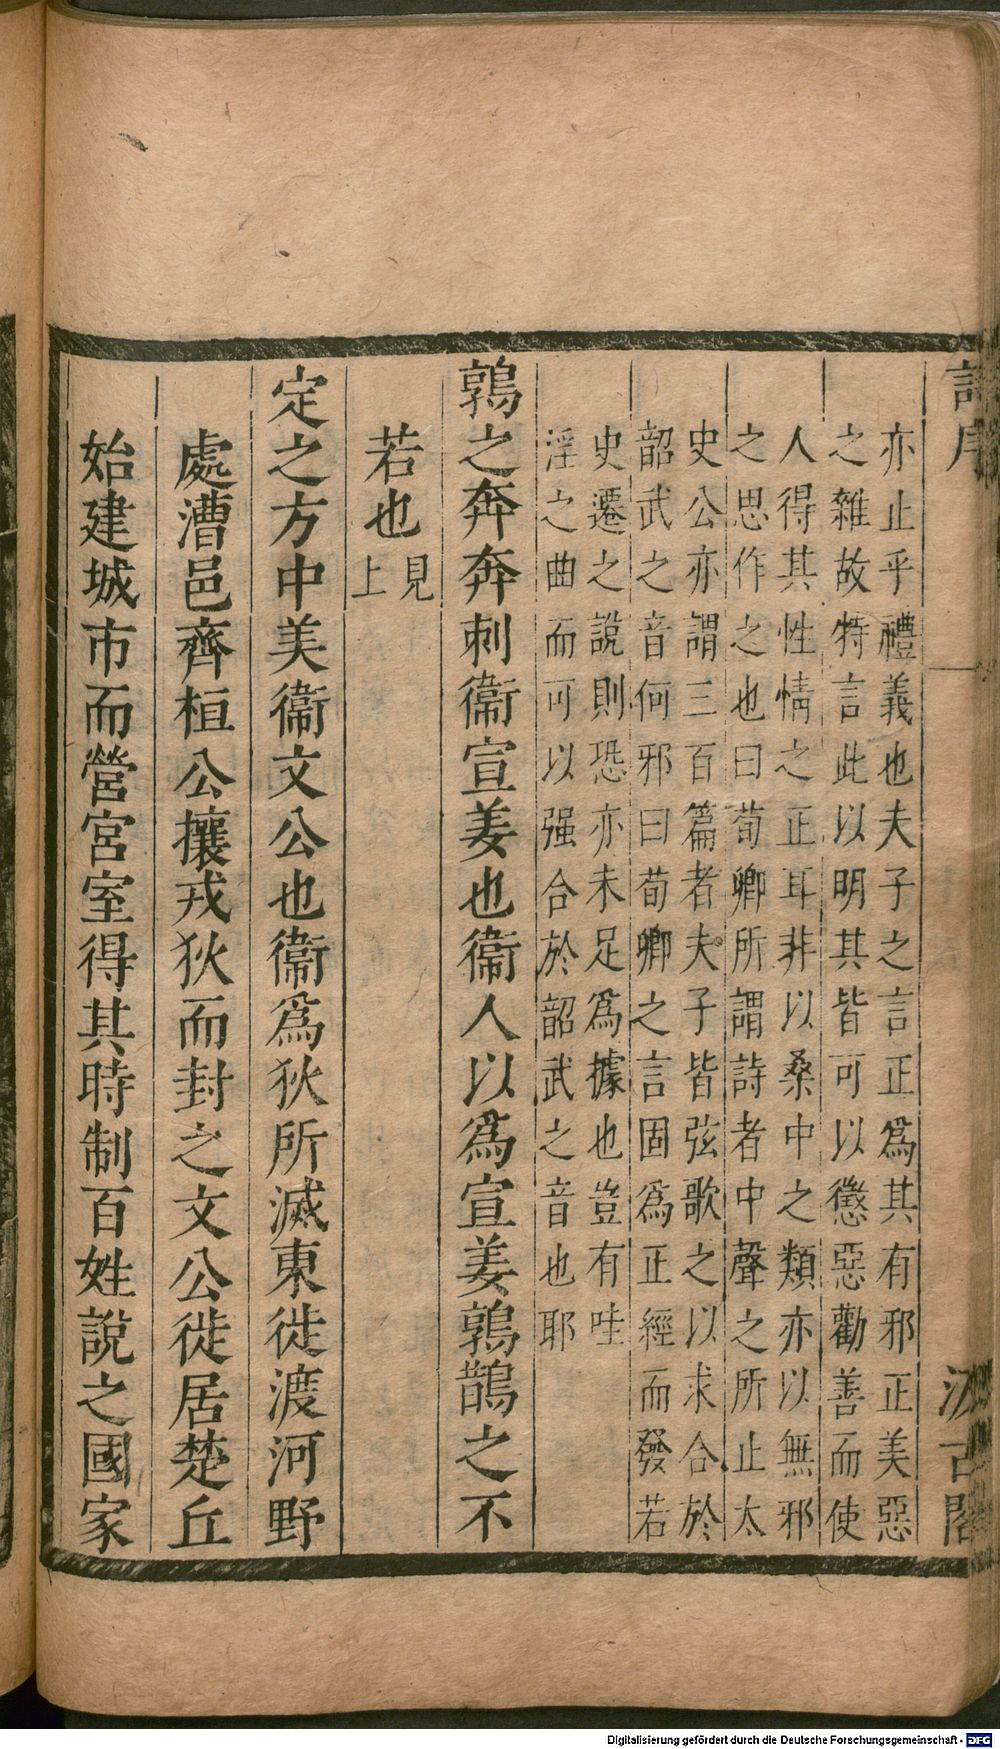 詩序 汲古閣
亦止乎禮義也夫子之言正爲其有邪正美惡
之雜故特言此以明其皆可以懲惡勸善而使
人得其性情之正耳非以桑中之類亦以無邪
之思作之也曰荀卿所謂詩者中聲之所止太
史公亦謂三百篇者夫子皆弦歌之以求合於
韶武之音何邪曰荀卿之言固爲正經而發若
史遷之說則恐亦未足爲據也豈有哇
淫之曲而可以强合於韶武之音也耶
鶉之奔奔刺衞宣姜也衞人以爲宣姜鶉鵲之不
若也見上
定之方中美衞文公也衞爲狄所滅東徙渡河野
處漕邑齊桓公攘戎狄而封之文公徙居楚丘
始建城市而營宮室得其時制百姓說之國家
Digitalisierung gefördert durch die Deutsche Forschungsgemeinschaft - DFG